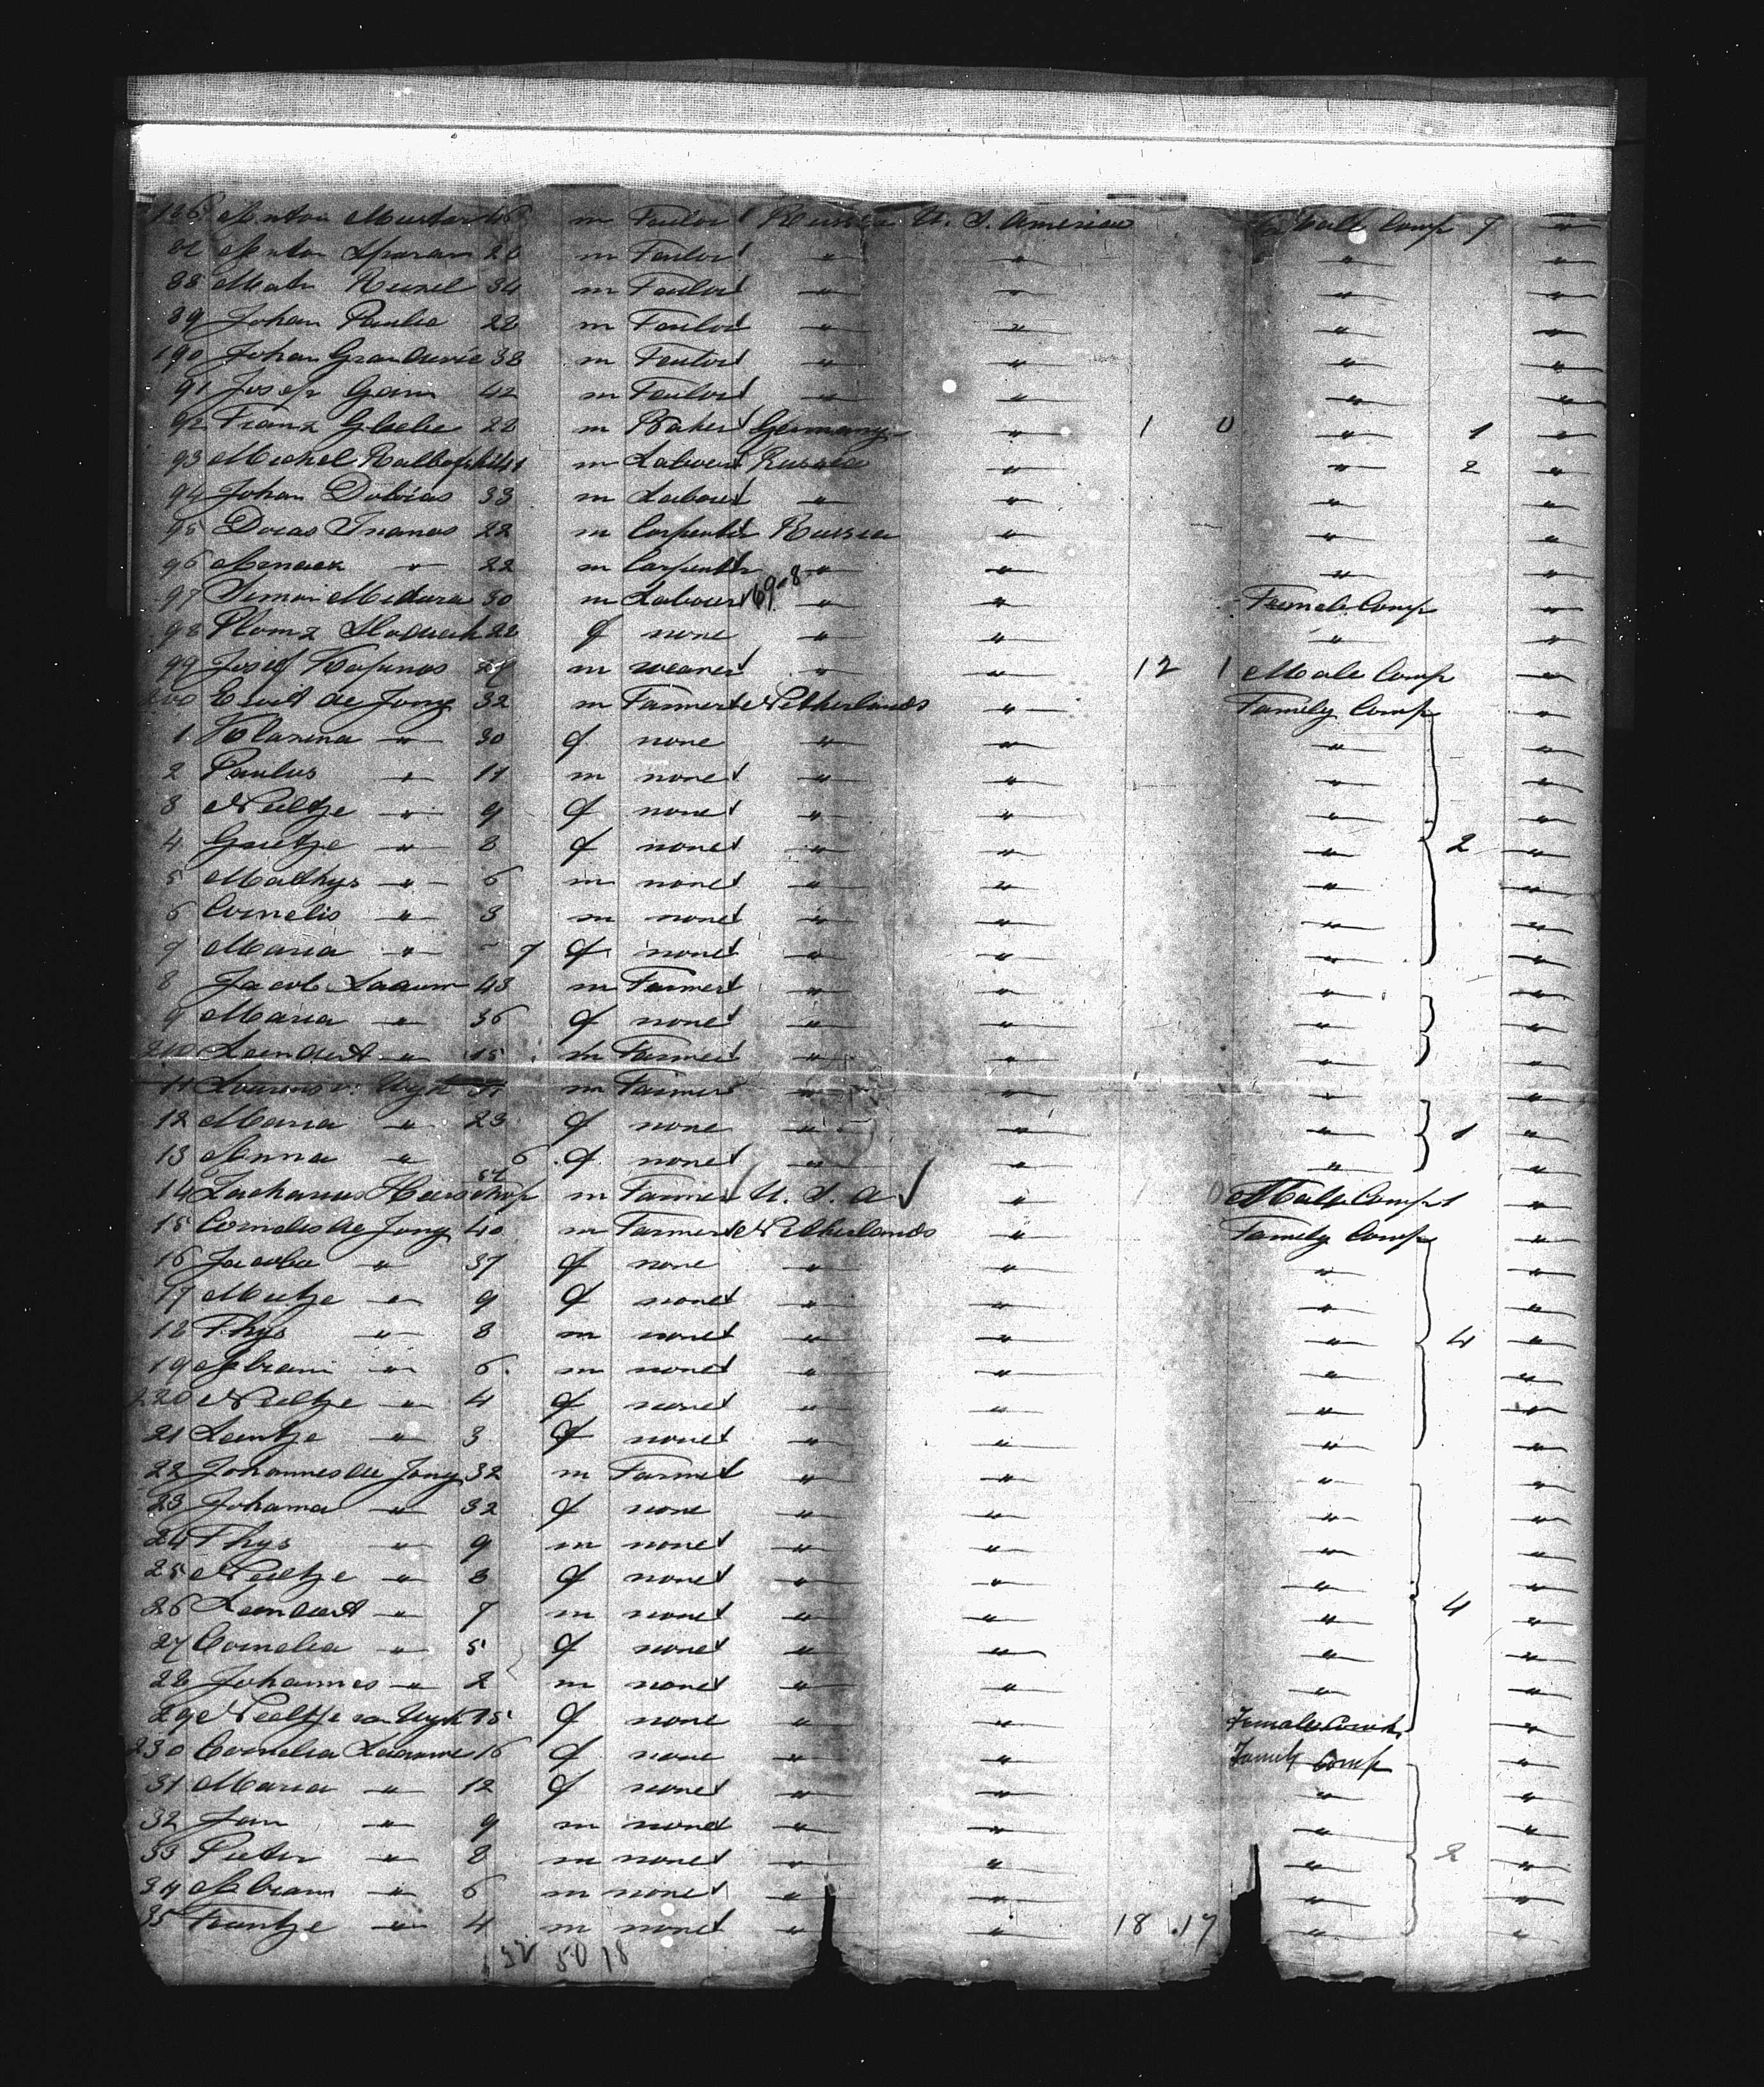 186 Anton Muster 46 m Tailor Russia U. S. America Male Comp 7 "
Anton 26 m Tailor " " " "
88 Math 34 m Tailor " " " "
89 Johan 22 m Tailor " " " "
190 Johan 38 m Tailor " " " "
91 Josef 42 m Tailor " " " "
92 Franz 22 m Baker Germany " 1 0 " 1 "
93 Michel 41 m Labour Russia " " 2 "
94 Johan 33 m Labour " " " "
95 22 m Carpenter Russia " " "
96 " 22 m Carpenter " " " "
97 30 m Labour 69-8 " " Female Comp "
98 22 f none " " " "
99 Josef m weaver " " 12 1 Male Comp "
200 Evert de Jong 32 m Farmer Netherlands " Family Comp "
1 Klazina " 30 f none " " " "
2 Paulus " 11 m none " " " "
3 Neeltje " 9 f none " " " "
4 Grietje " 8 f none " " " 2 "
5 Mathys " 6 m none " " " "
6 Cornelis " 3 m none " " " "
7 Maria " - 7 f none " " " "
8 Jacob 43 m Farmer " " " "
9 Maria " 36 f none " " " "
210 Leendert " 15 m Farmer " " " "
11 Lourens v. Wyk m Farmer " " "
12 Maria " 23 f none " " " 1 "
13 Anna " 6 f none " " " "
14 Zacharias m Farmer U. S. A " 0 Male Comp 1 "
15 Cornelis de Jong 40 m Farmer Netherlands " Family Comp "
16 Jacoba " 37 f none " " " "
17 " 9 f none " " " "
18 Thys " 8 m none " " " 4 "
19 Abram " 6 m none " " " "
220 Neeltje " 4 f none " " " "
21 Leentje " 3 f none " " " "
22 Johannes de Jong 32 m Farmer " " " "
23 Johanna " 32 f none " " " "
24 Thys " 9 m none " " " "
25 Neeltje " 8 f none " " " "
26 Leendert " 7 m none " " " 4 "
27 Cornelia " 5 f none " " " "
28 Johannes " 2 m none " " " "
29 Neeltje van Wyk 15 f none " " Female Comp "
230 Cornelia 16 f none " " Family Comp "
31 Maria " 12 f none " " " "
32 Jan " 9 m none " " " "
33 Pieter " 8 m none " " " 2 "
34 Abram " 6 m none " " " "
35 " 4 m none " " 18 17 " "
32 50 18